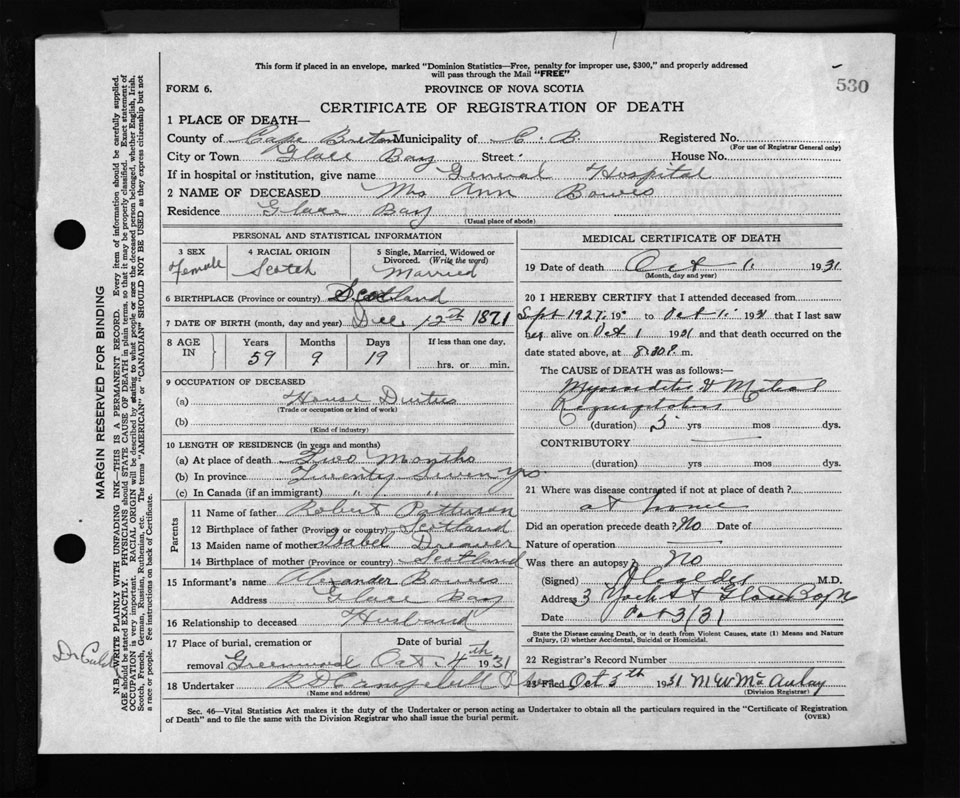 This form if placed in an envelope, marked "Dominion Statistics—Free, penalty for improper use, $300," and properly addressed
will pass through the Mail "FREE"
530
FORM 6. PROVINCE OF NOVA SCOTIA
CERTIFICATE OF REGISTRATION OF DEATH
1 PLACE OF DEATH—
County of Cape Breton Municipality of C. B. Registered No.
(For use of Registrar General only)
City or Town Glace Bay Street: House No.
If in hospital or institution, give name General Hospital
2 NAME OF DECEASED Mrs Ann Bowes
Residence Glace Bay
(Usual place of abode)
PERSONAL AND STATISTICAL INFORMATION
3 SEX 4 RACIAL ORIGIN 5 Single, Married, Widowed or
Divorced. (Write the word)
Female Scotch Married
6 BIRTHPLACE (Province or country) Scotland
7 DATE OF BIRTH (month, day and year) Dec 12th 1871
8 AGE IN Years Months Days If less than one day,
59 9 19 hrs. or min.
9 OCCUPATION OF DECEASED
(a) House Duties
(Trade or occupation or kind of work)
(b)
(Kind of industry)
10 LENGTH OF RESIDENCE (in years and months)
(a) At place of death Two Months
(b) In province Twenty Seven yrs
(c) In Canada (if an immigrant) " " " "
Parents
11 Name of father Robert Patterson
12 Birthplace of father (Province or country) Scotland
13 Maiden name of mother Isabel
14 Birthplace of mother (Province or country) Scotland
15 Informant's name Alexander Bowes
Address Glace Bay
16 Relationship to deceased Husband
17 Place of burial, cremation or Date of burial
removal Greenwood Oct. 4th 1931
18 Undertaker R D Campbell
(Name and address)
MEDICAL CERTIFICATE OF DEATH
19 Date of death Oct 1. 1931
(Month, day and year)
20 I HEREBY CERTIFY that I attended deceased from
Sept 1927, 19 to Oct 1. 1931 that I last saw
her alive on Oct 1 1931 and that death occurred on
the date stated above, at 8.30 P. m.
The CAUSE of DEATH was as follows:—
Myocarditis & Mitral
Regurgitation
(duration) 5 yrs mos dys.
CONTRIBUTORY
(duration) yrs mos dys.
21 Where was disease contracted if not at place of death?
at home
Did an operation precede death? No Date of
Nature of operation
Was there an autopsy? No
(Signed) M.D.
Address 3 York St Glace Bay
Date Oct 3/31
State the Disease causing Death, or in death from Violent Causes, state (1) Means and Nature
of Injury, (2) whether Accidental, Suicidal or Homicidal.
22 Registrar's Record Number
23 Filed Oct 5th 1931 M W McAulay
(Division Registrar)
Sec. 46—Vital Statistics Act makes it the duty of the Undertaker or person acting as Undertaker to obtain all the particulars required in the "Certificate of Registration
of Death" and to file the same with the Division Registrar who shall issue the burial permit. (OVER)
MARGIN RESERVED FOR BINDING
N.B.—WRITE PLAINLY WITH UNFADING INK—THIS IS A PERMANENT RECORD. Every item of information should be carefully supplied.
AGE should be stated EXACTLY. PHYSICIANS should STATE CAUSE OF DEATH in plain terms, so that it may be properly classified. Exact statement of
OCCUPATION is very important. RACIAL ORIGIN will be described by stating to what people or race the deceased person belonged, whether English, Irish,
Scotch, French, German, Russian, Ruthenian, etc. The terms "AMERICAN" or "CANADIAN" SHOULD NOT BE USED as they express citizenship but not
a race or people. See instructions on back of Certificate.